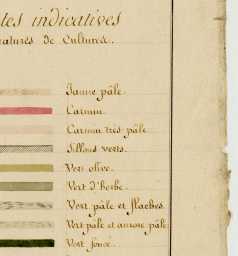 tes indicatives
natures de Cultures.
Jaune pâle.
Carmin.
Carmin très pâle
Sillons verts.
Vert olive.
Vert d'herbe.
Vert pâle et flaches.
Vert pâle et aurore pâle
Vert foncé.